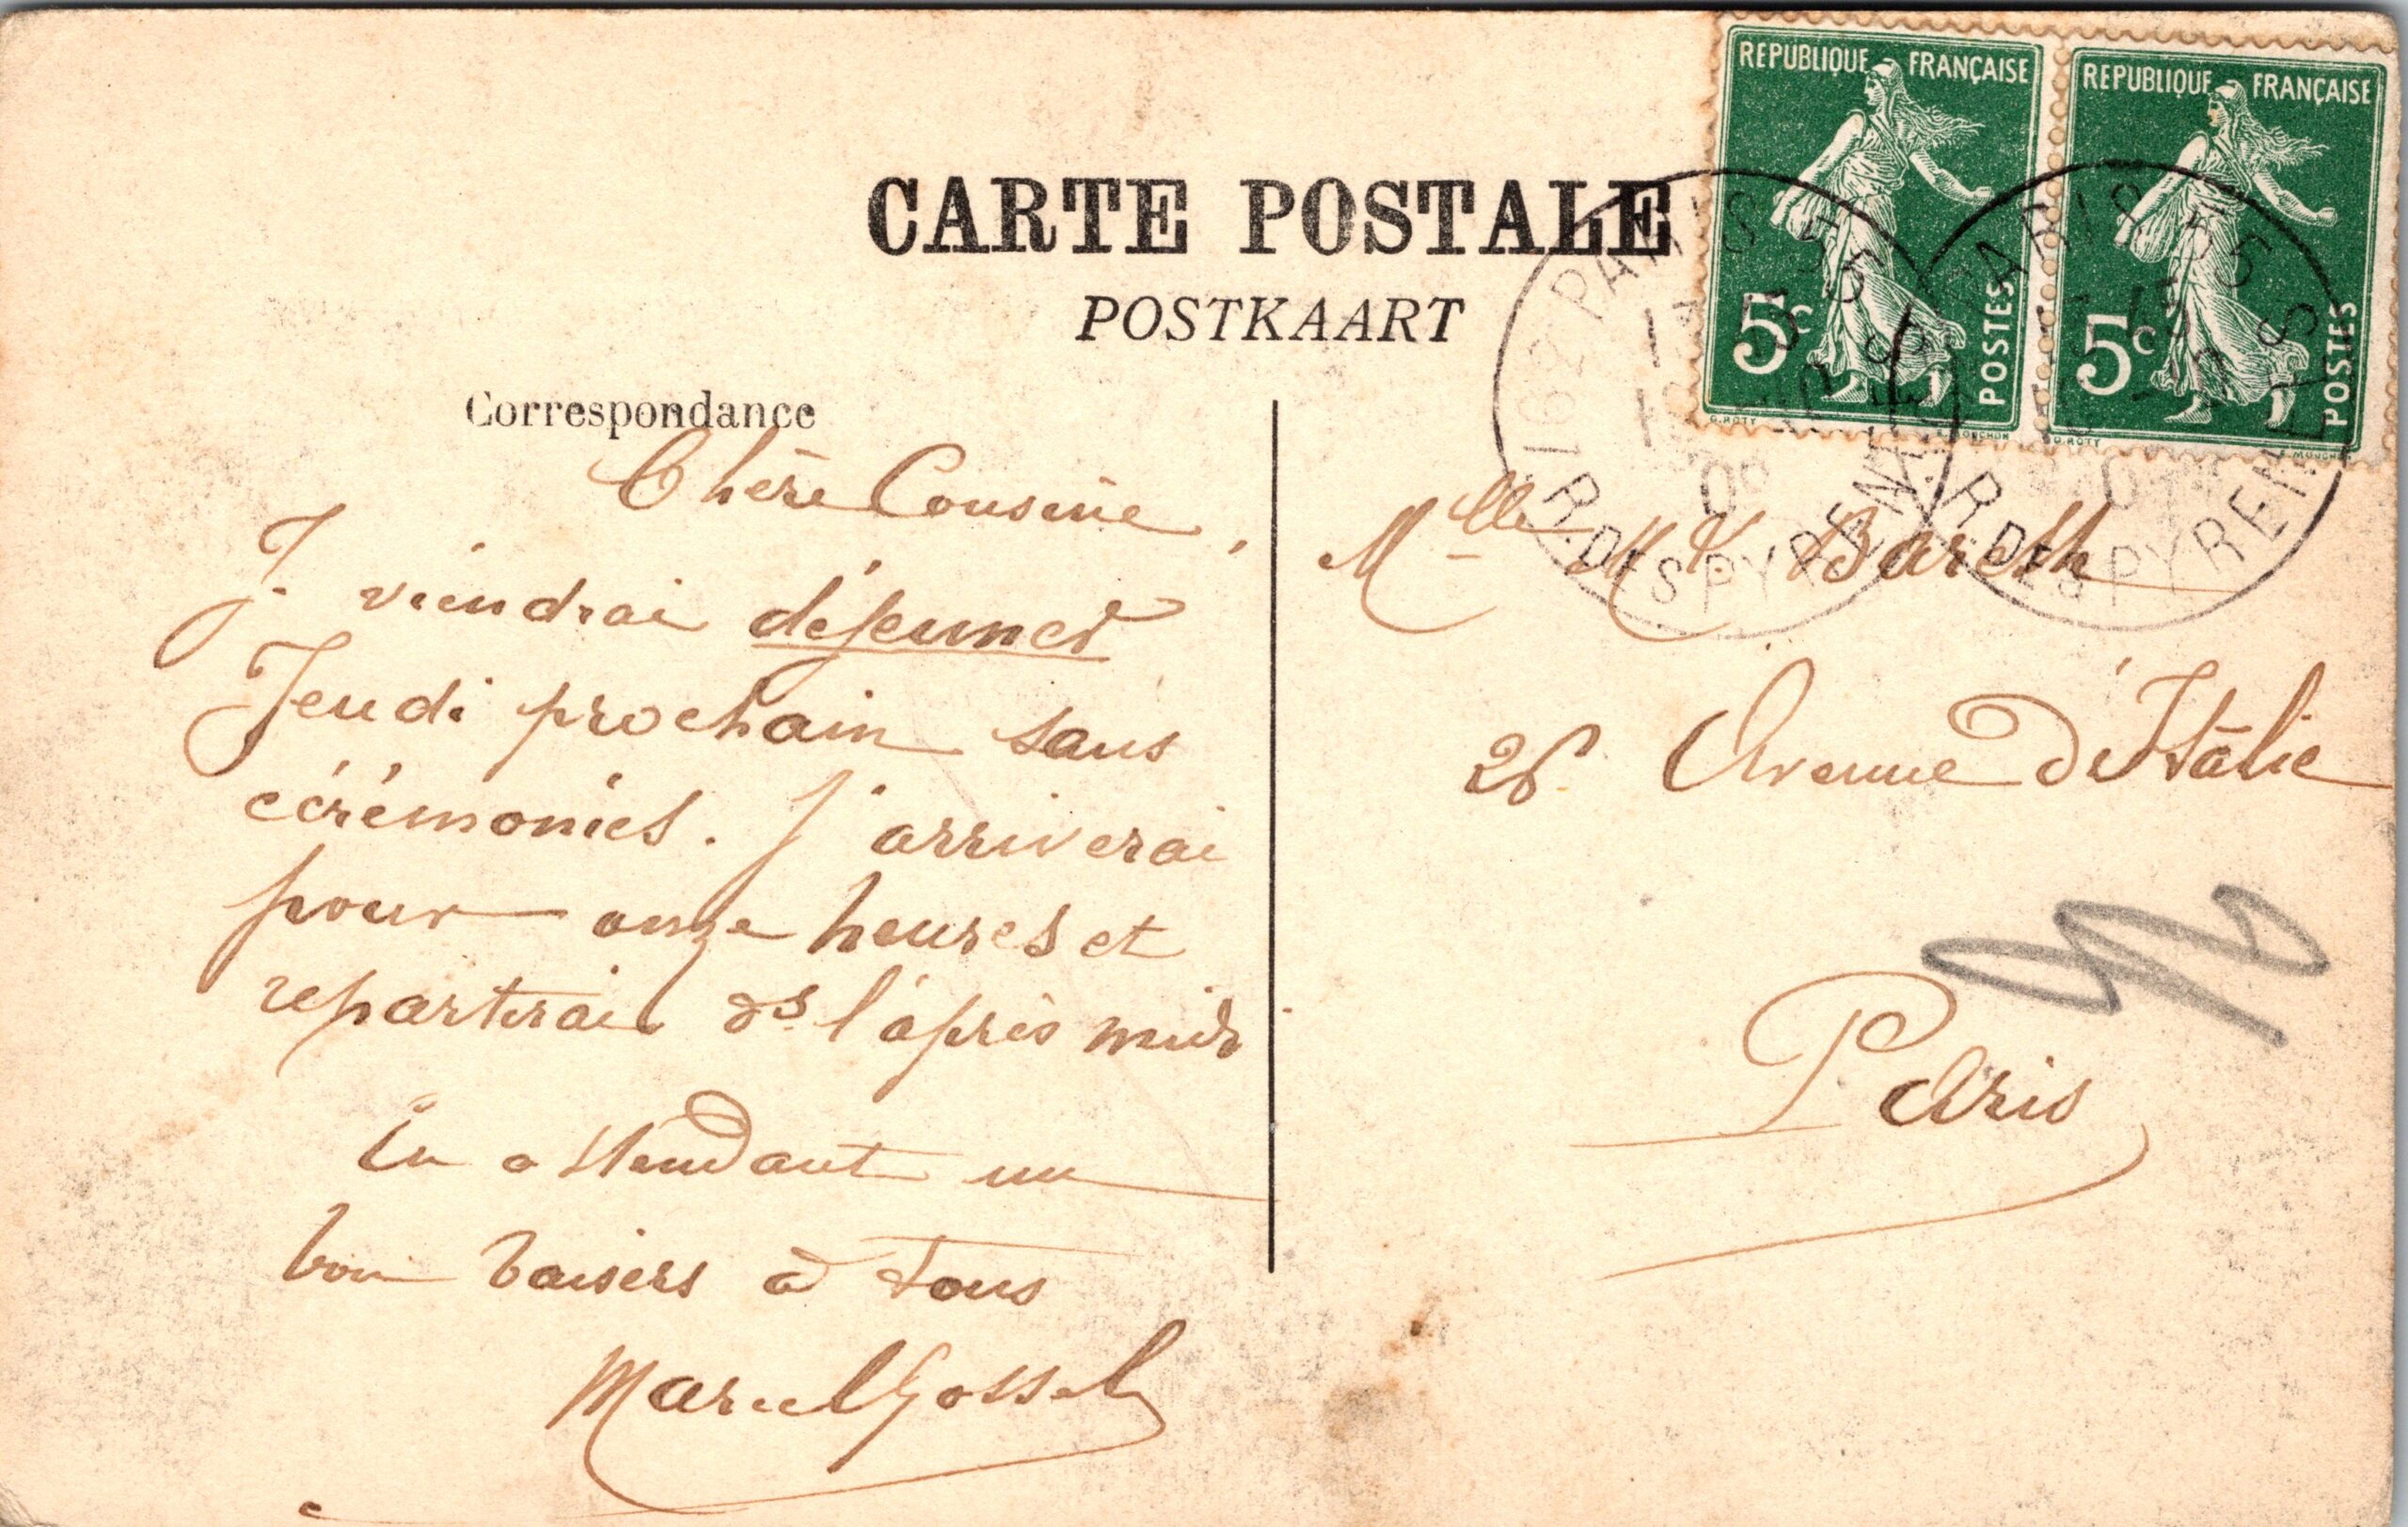 REPUBLIQUE FRANÇAISE
5c POSTES
O. ROTY
E. MOUCHON
REPUBLIQUE FRANÇAISE
5c POSTES
O. ROTY
E. MOUCHON
CARTE POSTALE
POSTKAART
PARIS 55
R. DES PYRENEES
PARIS 55
R. DES PYRENEES
Correspondance
Chère Cousine,
J. viendrai déjeuner
Jeudi prochain sans
cérémonies. J'arriverai
pour onze heures et
repartirai ds l'après midi
En attendant un
bon baisers à tous
Marcel Gossel
Mlle M
26. Avenue d'Italie
Paris